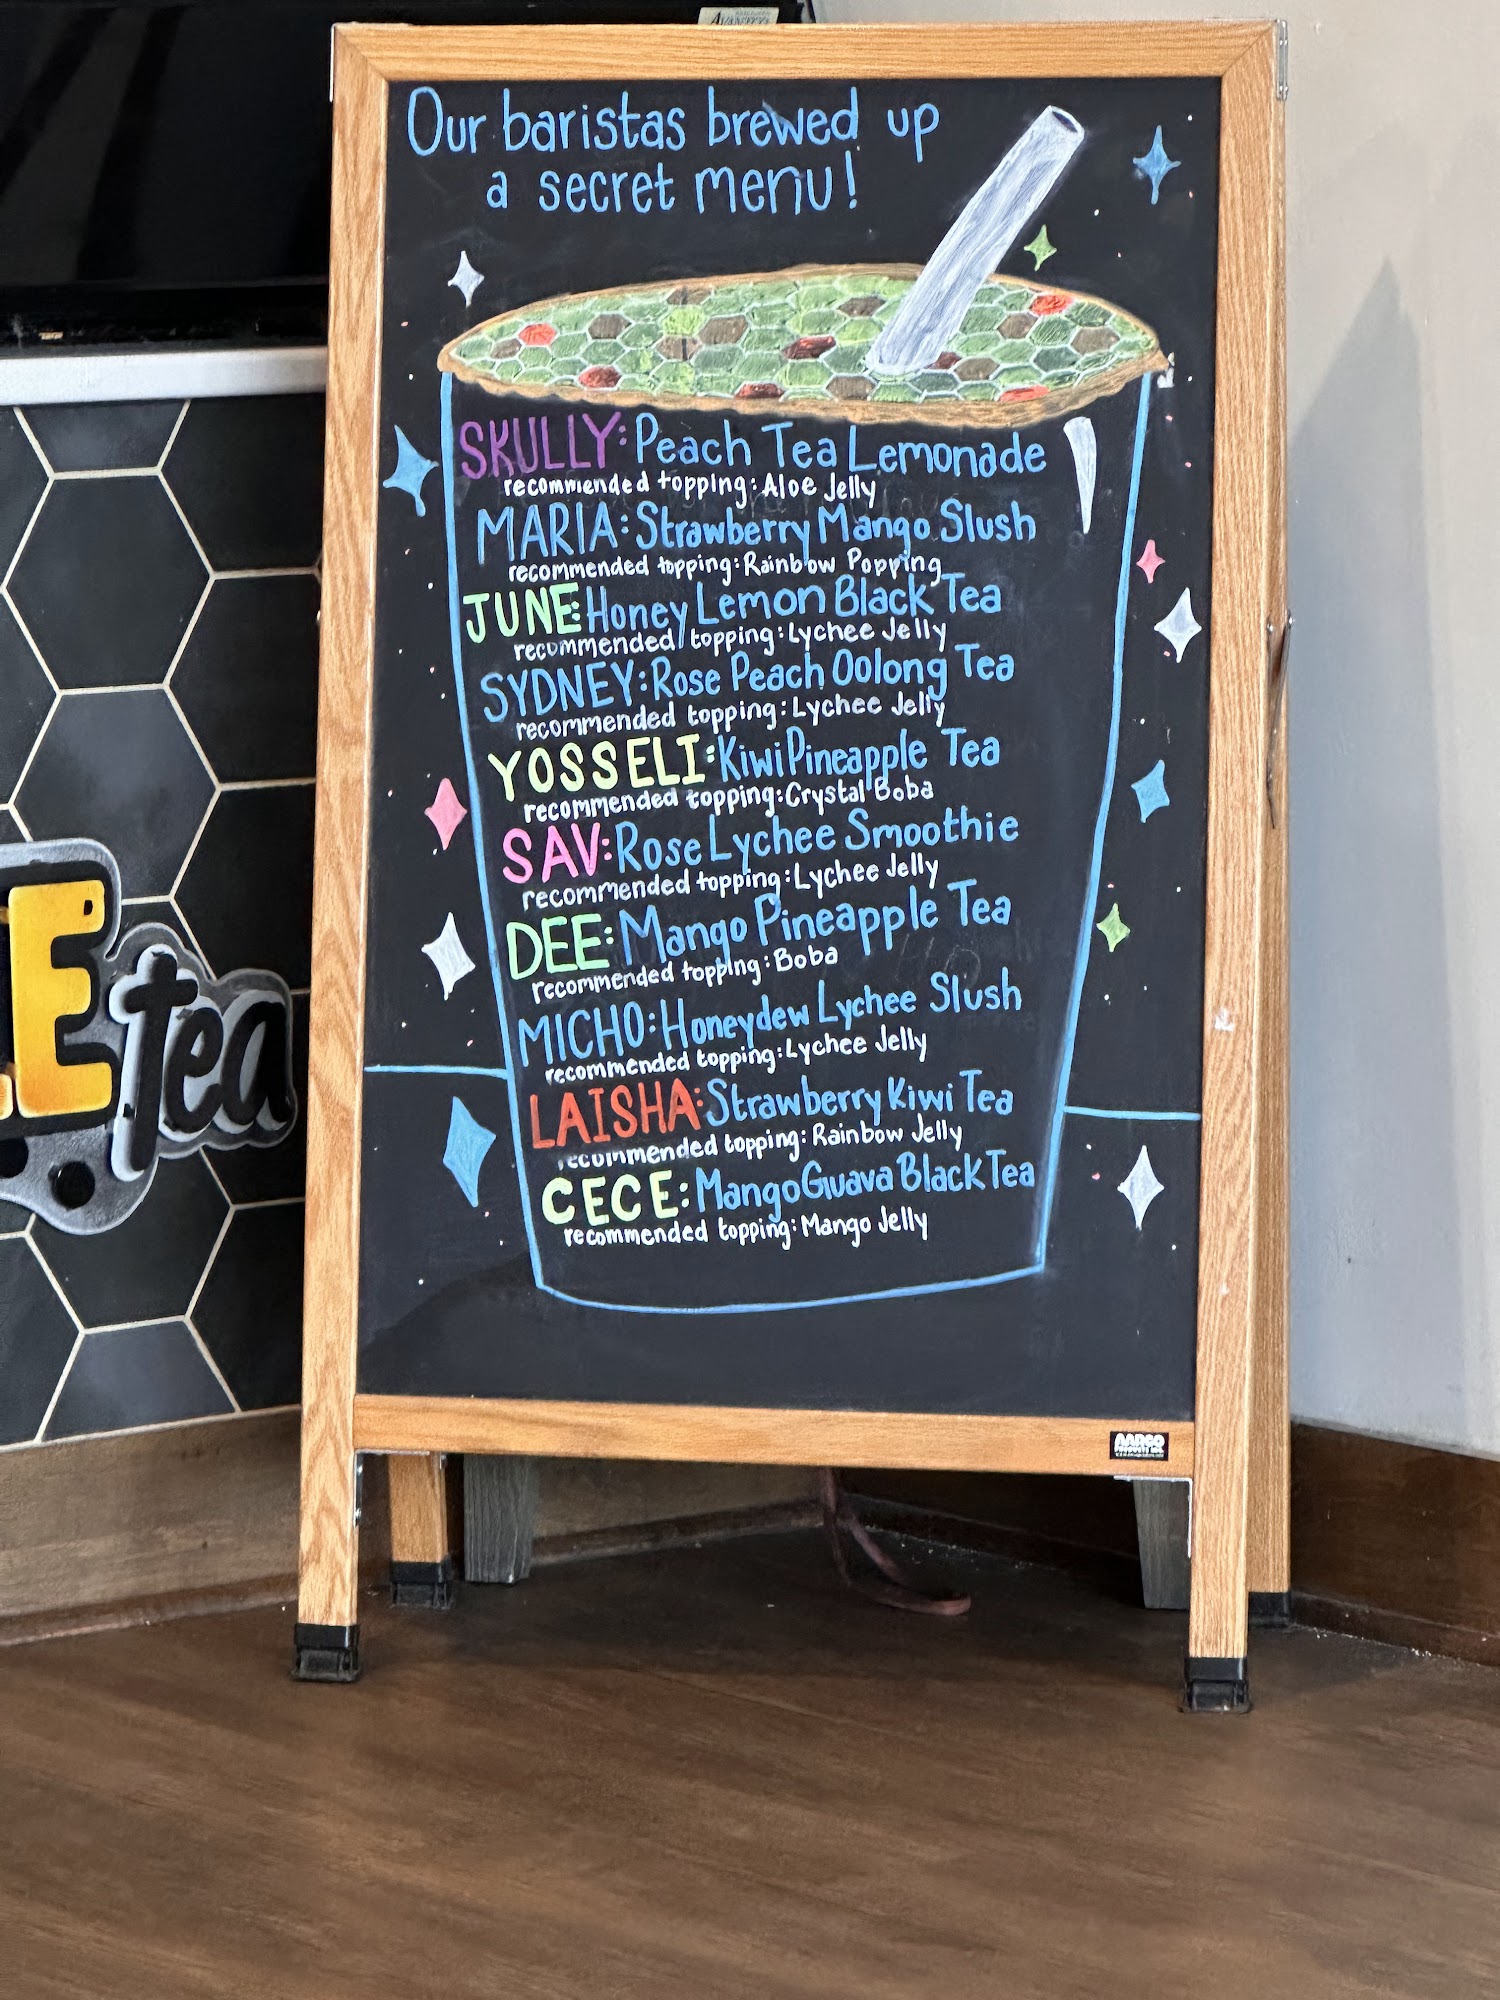 Our baristas brewed up
a secret menu!
SKULLY: Peach Tea Lemonade
recommended topping: Aloe Jelly
MARIA: Strawberry Mango Slush
recommended topping: Rainbow Popping
JUNE: Honey Lemon Black Tea
recommended topping: Lychee Jelly
SYDNEY: Rose Peach Oolong Tea
recommended topping: Lychee Jelly
YOSSELI: Kiwi Pineapple Tea
recommended topping: Crystal Boba
SAV: Rose Lychee Smoothie
recommended topping: Lychee Jelly
DEE: Mango Pineapple Tea
recommended topping: Boba
MICHO: Honeydew Lychee Slush
recommended topping: Lychee Jelly
LAISHA: Strawberry Kiwi Tea
recommended topping: Rainbow Jelly
CECE: Mango Guava Black Tea
recommended topping: Mango Jelly
E tea
AARCO
PRODUCTS INC.